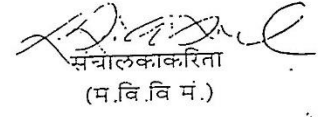 संचालकाकरिता
(म.वि.वि मं.)